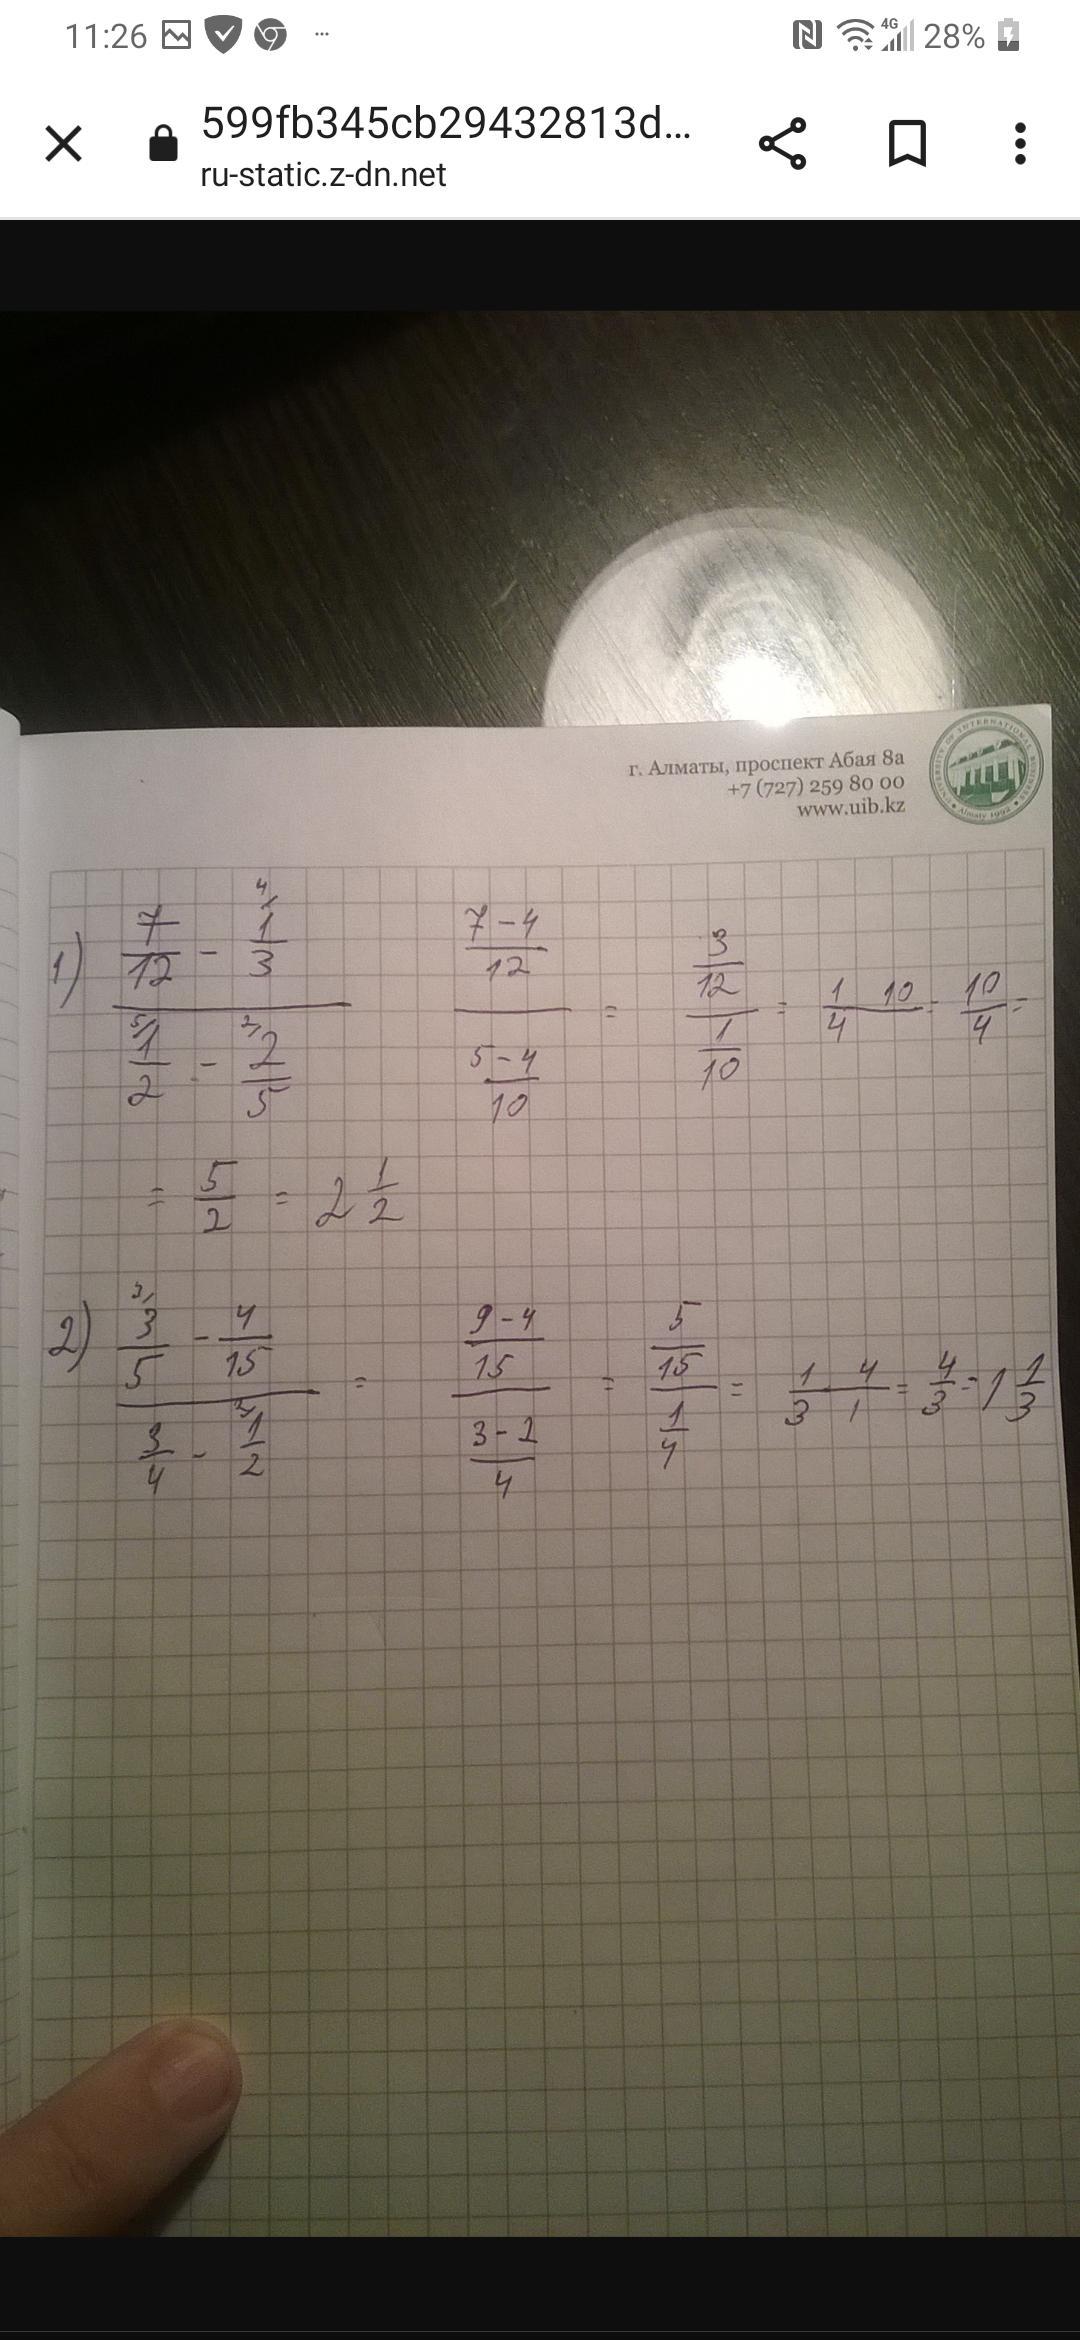 11:26 ... 4G 28%
599fb345cb29432813d...
ru-static.z-dn.net
г. Алматы, проспект Абая 8а
+7 (727) 259 80 00
www.uib.kz
UNIVERSITY OF INTERNATIONAL BUSINESS • Almaty 1992 •
1) (7/12 - 4/ 1/3) / (5/ 1/2 - 2/ 2/5) ((7-4)/12) / ((5-4)/10) = (3/12) / (1/10) = 1/4 10 = 10/4 =
= 5/2 = 2 1/2
2) (3/ 3/5 - 4/15) / (3/4 - 2/ 1/2) = ((9-4)/15) / ((3-2)/4) = (5/15) / (1/4) = 1/3 · 4/1 = 4/3 = 1 1/3